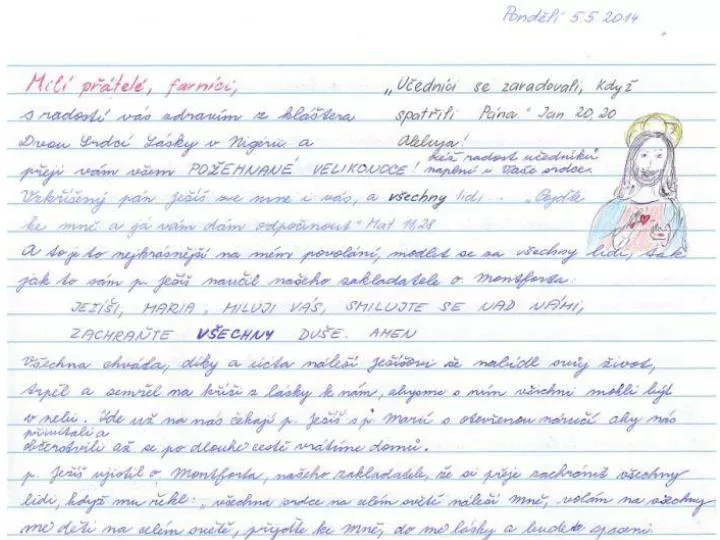 Pondělí 5.5.2014
Milí přátelé, farníci,
s radostí vás zdravím z kláštera
Dvou Srdcí Lásky v Nigérii a
přeji vám všem POŽEHNANÉ VELIKONOCE!
„Učedníci se zaradovali, když
spatřili Pána" Jan 20,20
Aleluja!
kéž radost učedníků
naplní i Vaše srdce.
Vzkříšený pán Ježíš zve mne i vás, a všechny lidi... „Pojďte
ke mně a já vám dám odpočinout" Mat 11,28
A to je to nejkrásnější na mém povolání, modlit se za všechny lidi, tak
jak to sám p. Ježíš naučil našeho zakladatele o. Montforta:
JEŽÍŠI, MARIA, MILUJI VÁS, SMILUJTE SE NAD NÁMI,
ZACHRAŇTE VŠECHNY DUŠE. AMEN
Všechna chvála, díky a úcta náleží Ježíšovi že nabídl svůj život,
trpěl a zemřel na kříži z lásky k nám, abysme s ním všichni mohli být
v nebi. Zde už na nás čekají p. Ježíš s p. Marií s otevřenou náručí aby nás
přivítali a
občerstvili až se po dlouhé cestě vrátíme domů.
p. Ježíš ujistil o. Montforta, našeho zakladatele, že si přeje zachránit všechny
lidi, když mu řekl: „všechna srdce na celém světě náleží Mně, volám na všechny
mé děti na celém světě, přijďte ke Mně, do mé lásky a budete spaseni.